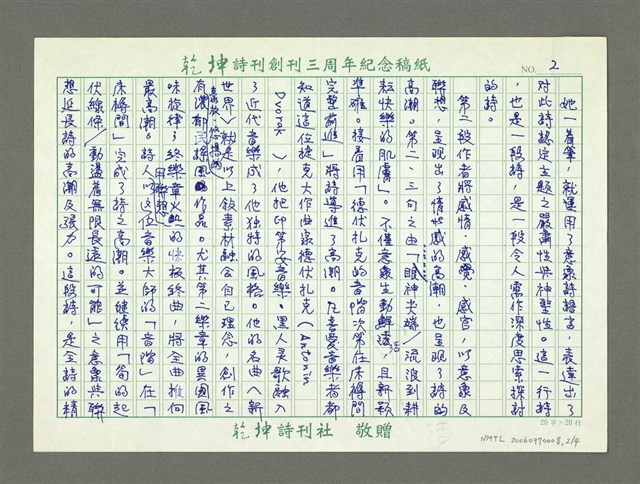 乾坤詩刊創刊三周年紀念稿紙
NO. 2
她一着筆，就運用了意象詩語言，表達出了
對此詩認定主題之嚴肅性與神聖性。這一行詩
，也是一段詩，是一段令人需作深度思索探討
的詩。
第二段作者將感情、感覺、感官，以意象及
聯想，呈現出了情性感的高潮，也呈現了詩的
高潮。第二、三句之由「眼神尖端／流浪到耕
耘快樂的肌膚」。不僅意象生動鮮活，且新穎
準確。接着用「德伏扎克的音階次第在床褥間
完整前進」將詩導進了高潮。凡喜愛音樂者都
知道這位捷克大作曲家德伏扎克（Antonin
Dvork），他把印第安音樂、黑人靈歌融入
了近代音樂成了他獨特的風格。他的名曲〈新
世界〉就是以上敍素材融合自已理念，創作之
有濃郁民謠風作品。尤其第二樂章的異國風
味旋律；終樂章火熱的快板終曲，將全曲推向
最高潮。詩人用聯想以這位音樂大師的「音階」在「
床褥間」完成了詩之高潮。並繼續用「筍的起
伏線條／動盪着無限長遠的可能」之意象與聯
想延長詩的高潮及張力。這段詩，是全詩的精
20字×20行
乾坤詩刊社 敬贈
NMTL 20060970008, 2/4